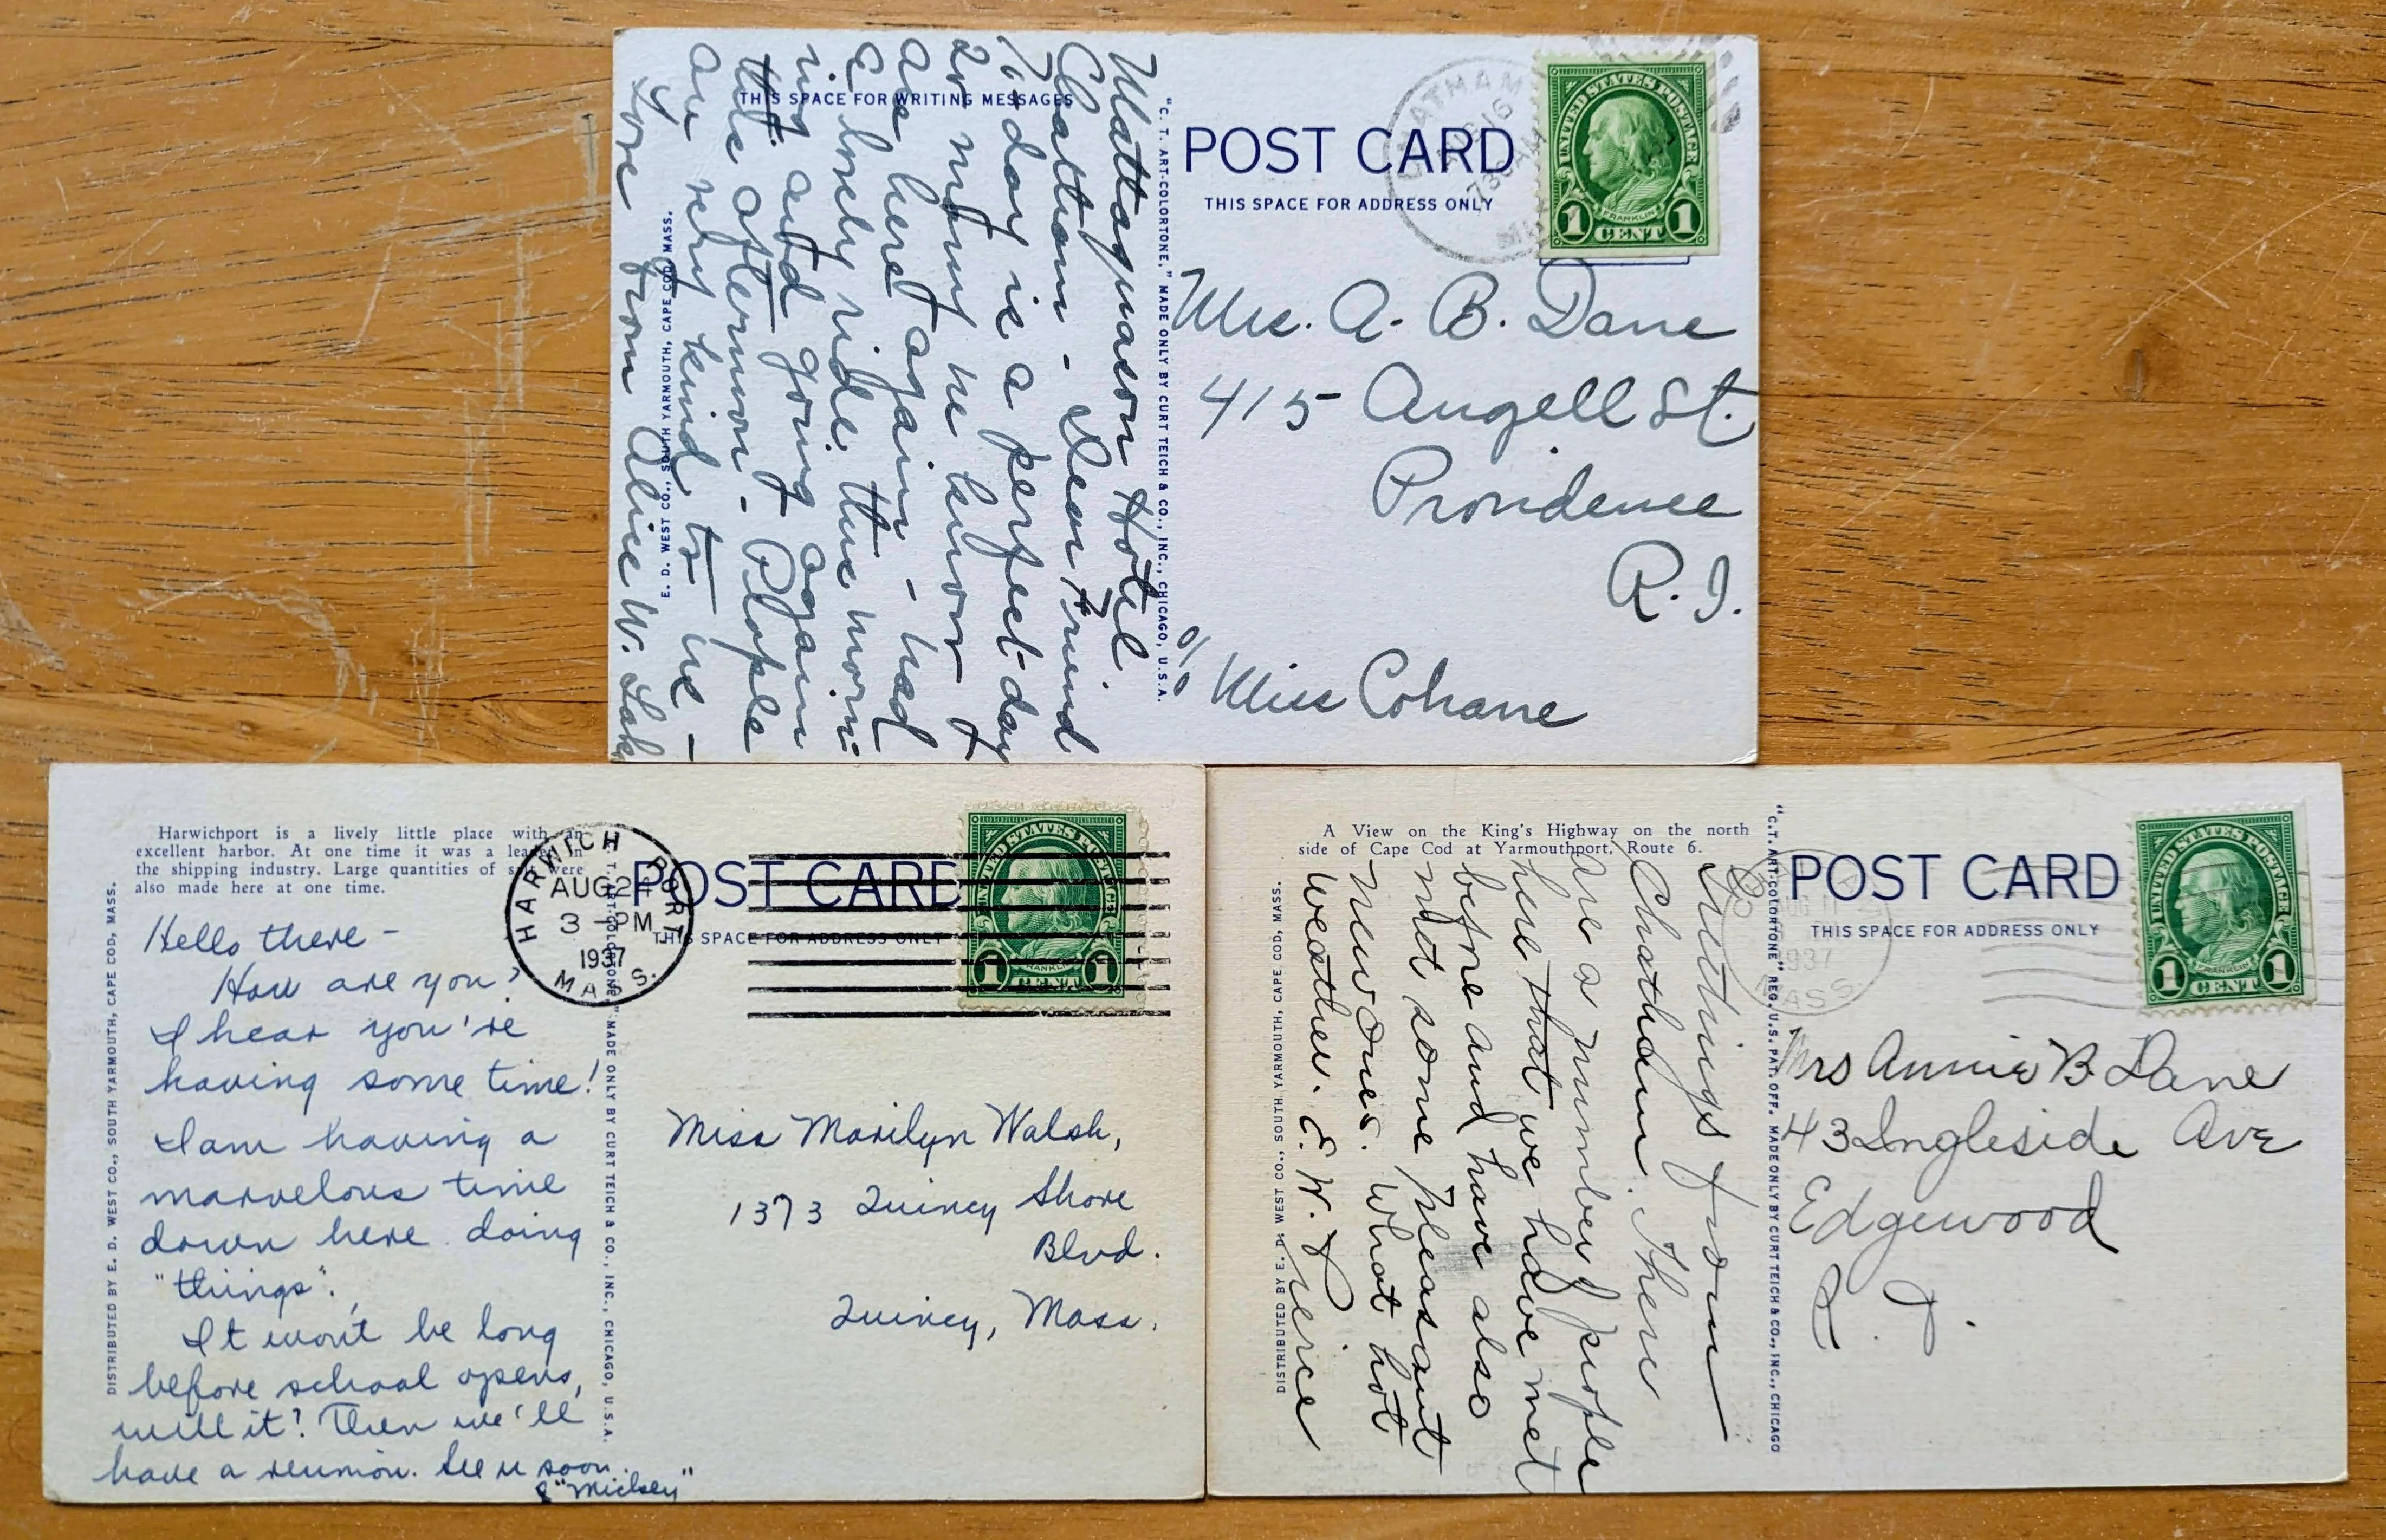 THIS SPACE FOR WRITING MESSAGES
Mattaquason Hotel.
Chatham - Dear Friend
To-day is a perfect day
20 many we know
are here again - had
a lovely ride this morn-
ing and going again
this afternoon - People
are very kind to me -
Love from Alice W. Lak
E. D. WEST CO., SOUTH YARMOUTH, CAPE COD, MASS.
"C. T. ART-COLORTONE," MADE ONLY BY CURT TEICH & CO., INC., CHICAGO, U.S.A.
POST CARD
THIS SPACE FOR ADDRESS ONLY
CHATHAM
AUG 16
730 AM
UNITED STATES POSTAGE
FRANKLIN
1 CENT 1
Mrs. A. B. Dane
415 Angell St.
Providence
R. I.
c/o Miss Cohane
Harwichport is a lively little place with an
excellent harbor. At one time it was a leader in
the shipping industry. Large quantities of salt were
also made here at one time.
DISTRIBUTED BY E. D. WEST CO., SOUTH YARMOUTH, CAPE COD, MASS.
Hello there -
How are you?
I hear you're
having some time!
I am having a
marvelous time
down here doing
"things".
It won't be long
before school opens,
will it? Then we'll
have a reunion. See u soon.
"Mickey"
C. T. ART-COLORTONE," MADE ONLY BY CURT TEICH & CO., INC., CHICAGO, U.S.A.
HARWICH PORT
AUG 24
3 - PM
1937
MASS.
POST CARD
THIS SPACE FOR ADDRESS ONLY
UNITED STATES POSTAGE
FRANKLIN
1 CENT 1
Miss Marilyn Walsh,
1373 Quincy Shore
Blvd.
Quincy, Mass.
A View on the King's Highway on the north
side of Cape Cod at Yarmouthport, Route 6.
DISTRIBUTED BY E. D. WEST CO., SOUTH YARMOUTH, CAPE COD, MASS.
Greetings from
Chatham. There
are a number of people
here that we have met
before and have also
met some pleasant
new ones. What hot
weather. E. W. Peirce
"C.T. ART-COLORTONE" REG. U.S. PAT. OFF. MADE ONLY BY CURT TEICH & CO., INC., CHICAGO
POST CARD
THIS SPACE FOR ADDRESS ONLY
AUG 11
1937
MASS
UNITED STATES POSTAGE
FRANKLIN
1 CENT 1
Mrs Annie B. Dane
43 Ingleside Ave
Edgewood
R. I.